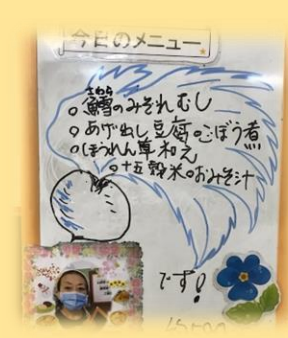 今日のメニュー
さわら
のみぞれむし
○あげ出し豆腐○ごぼう煮
○ほうれん草和え
○十五穀米○おみそ汁
です!